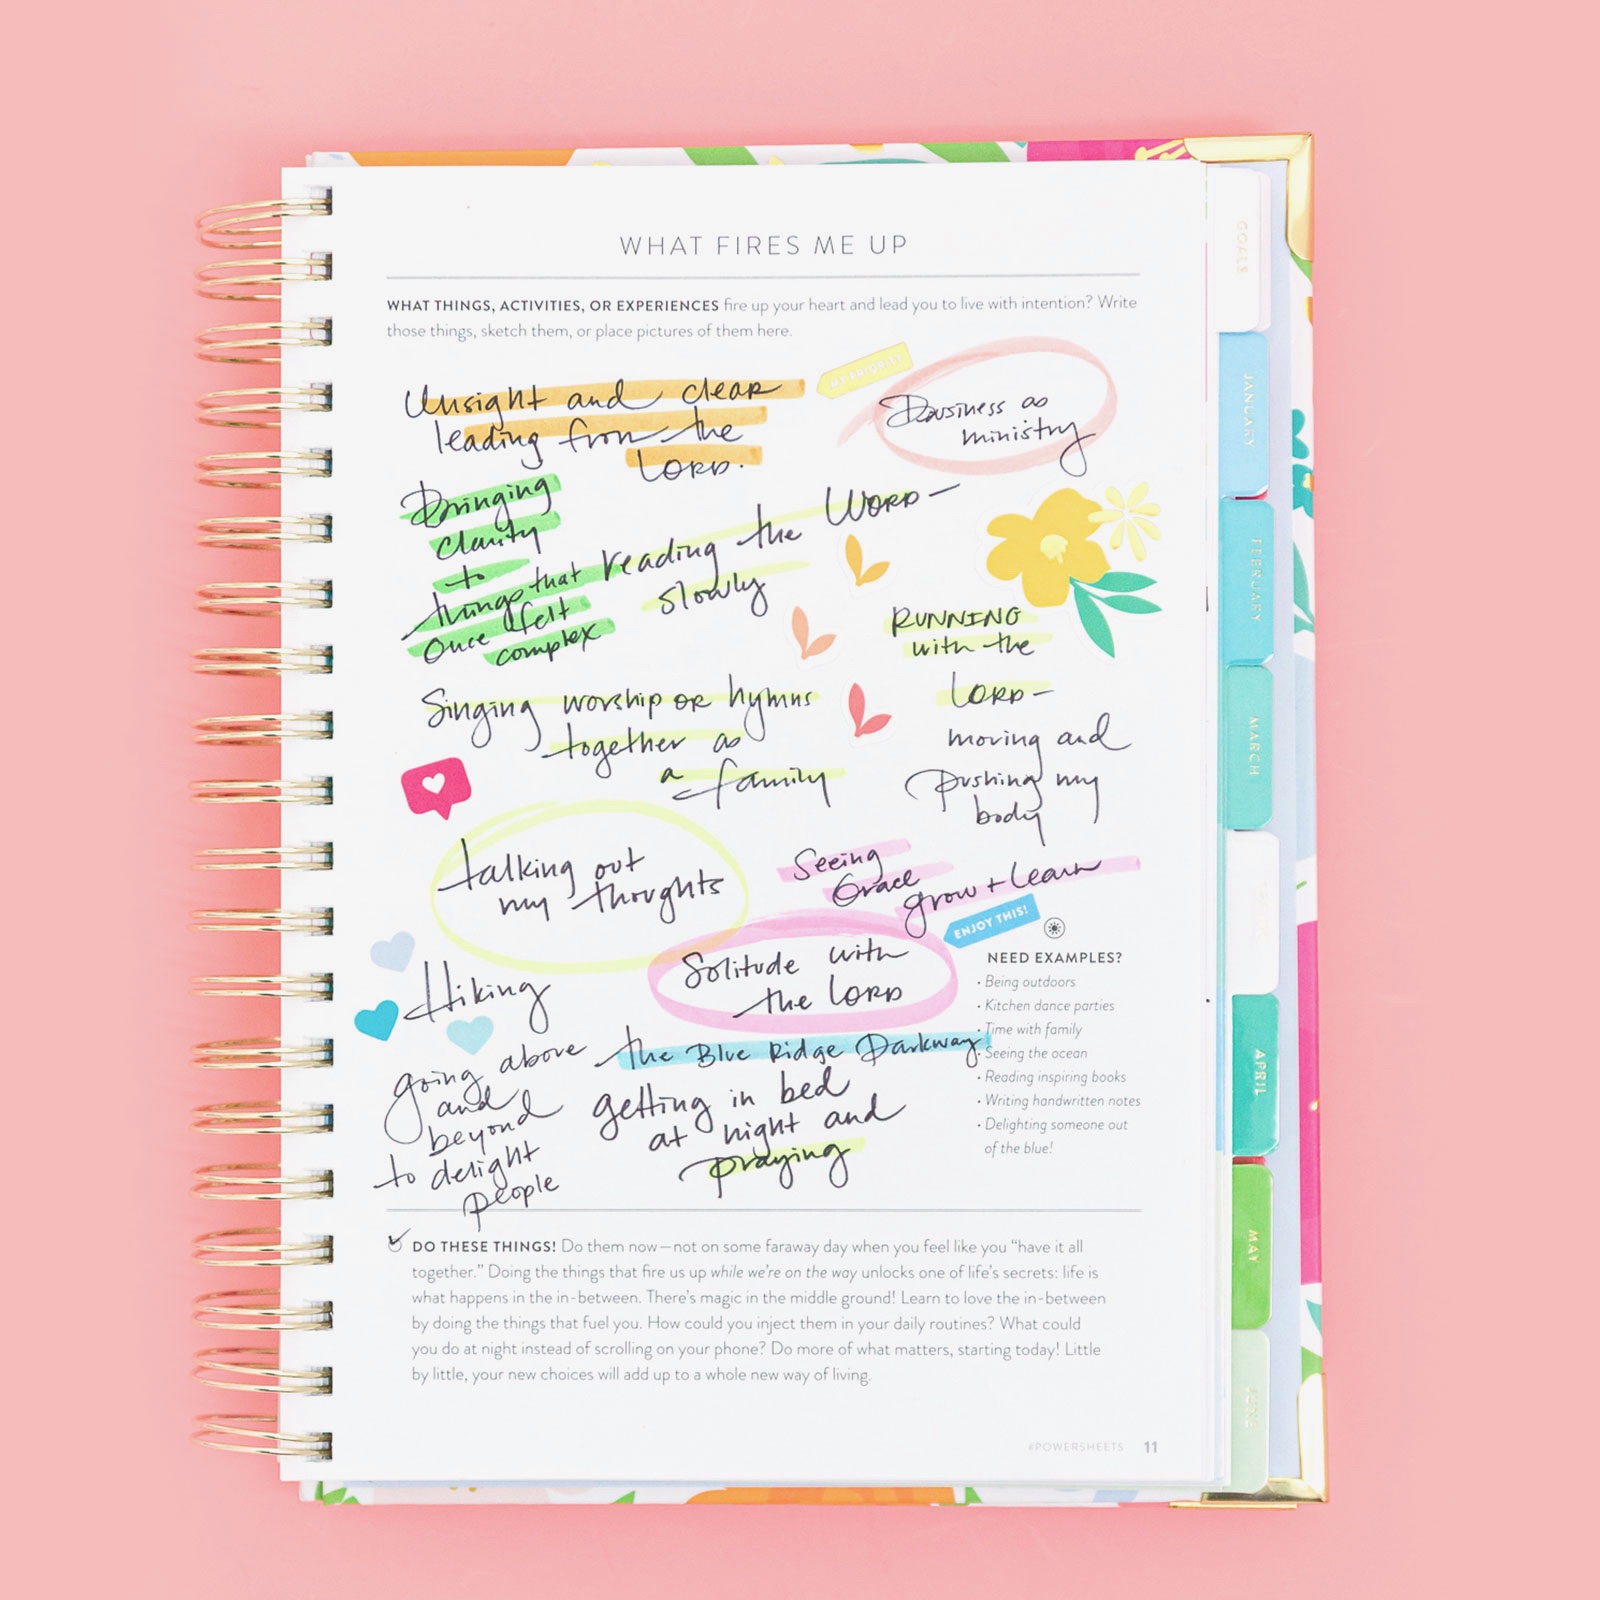 WHAT FIRES ME UP
WHAT THINGS, ACTIVITIES, OR EXPERIENCES fire up your heart and lead you to live with intention? Write
those things, sketch them, or place pictures of them here.
MY PRIORITY
Unsight and clear
leading from the
LORD.
Business as
ministry
Bringing
clarity
to
things that
once felt
complex
reading the WORD —
slowly
RUNNING
with the
LORD —
moving and
pushing my
body
Singing worship or hymns
together as
a family
talking out
my thoughts
Seeing
Grace
grow + learn
ENJOY THIS!
Solitude with
the LORD
Hiking
the Blue Ridge Parkway
going above
and
beyond
to delight
people
getting in bed
at night and
praying
NEED EXAMPLES?
• Being outdoors
• Kitchen dance parties
• Time with family
• Seeing the ocean
• Reading inspiring books
• Writing handwritten notes
• Delighting someone out
of the blue!
DO THESE THINGS! Do them now—not on some faraway day when you feel like you “have it all
together.” Doing the things that fire us up while we’re on the way unlocks one of life’s secrets: life is
what happens in the in-between. There’s magic in the middle ground! Learn to love the in-between
by doing the things that fuel you. How could you inject them in your daily routines? What could
you do at night instead of scrolling on your phone? Do more of what matters, starting today! Little
by little, your new choices will add up to a whole new way of living.
#POWERSHEETS 11
GOALS
JANUARY
FEBRUARY
MARCH
APRIL
MAY
JUNE